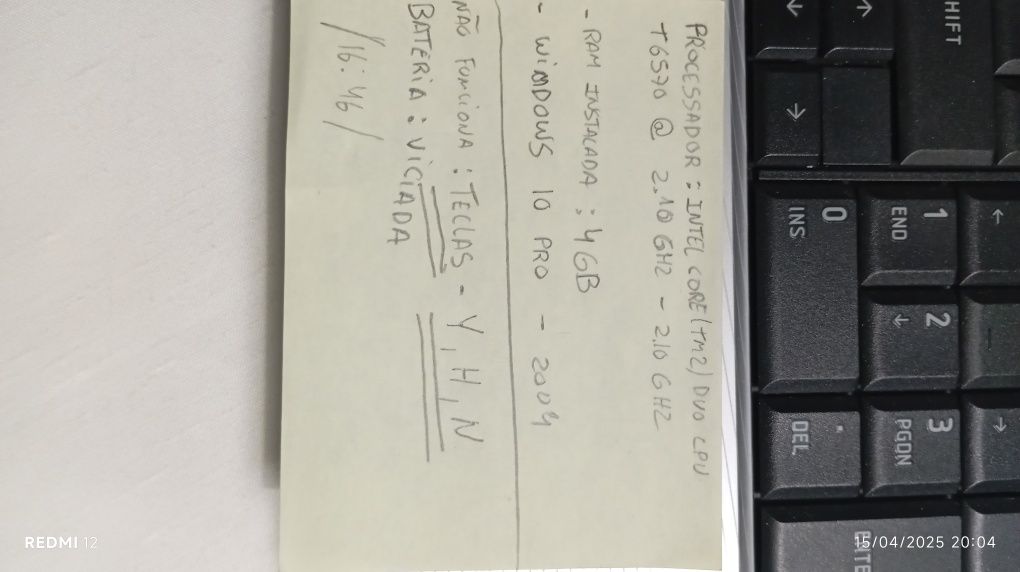 PROCESSADOR : INTEL CORE (TM2) DUO CPU
T6570 @ 2.10 GHZ - 2.10 GHZ
- RAM INSTALADA : 4 GB
- WINDOWS 10 PRO - 2004
NÃO FUNCIONA : TECLAS - Y, H, N
BATERIA : VICIADA
/16:46/
HIFT
1
END
2
3
PGDN
0
INS
.
DEL
REDMI 12
15/04/2025 20:04